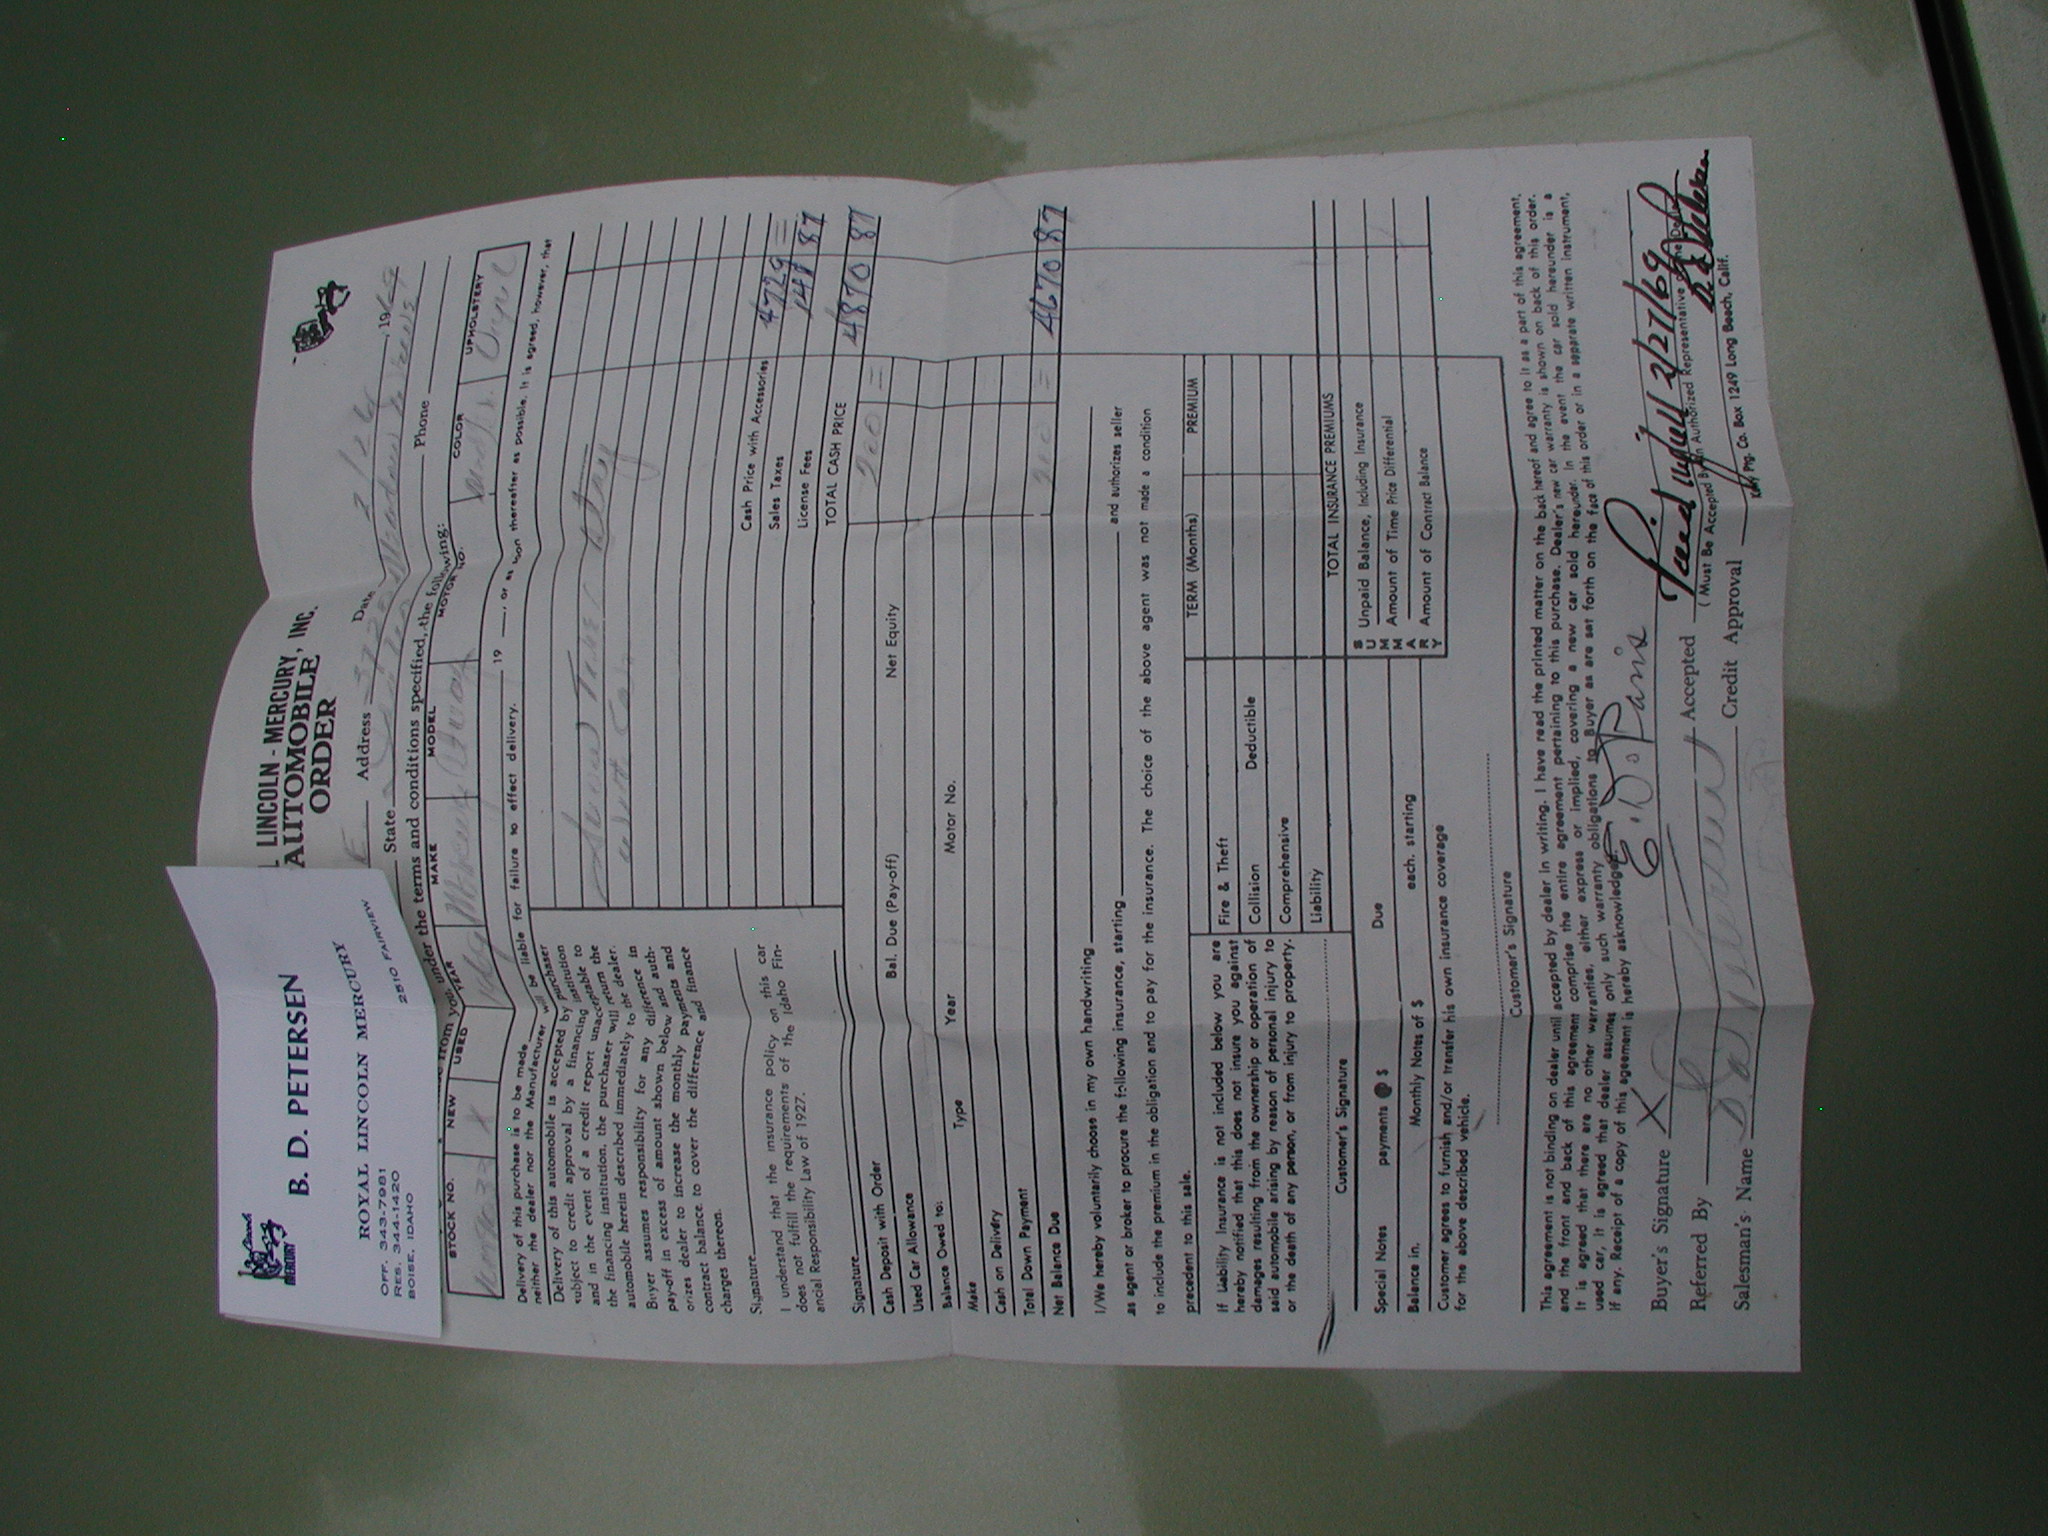 B. D. PETERSEN
ROYAL LINCOLN MERCURY
OFF. 343-7981
RES. 344-1420
BOISE, IDAHO
2510 FAIRVIEW
MERCURY
LINCOLN - MERCURY, INC.
AUTOMOBILE
ORDER
Date 2/26, 1969
Address
State Phone
from you, under the terms and conditions specified, the following:
STOCK NO. NEW USED YEAR MAKE MODEL MOTOR NO. COLOR UPHOLSTERY
X
Delivery of this purchase is to be made 19, or as soon thereafter as possible. It is agreed, however, that
neither the dealer nor the Manufacturer will be liable for failure to effect delivery.
Delivery of this automobile is accepted by purchaser
subject to credit approval by a financing institution
and in the event of a credit report unacceptable to
the financing institution, the purchaser will return the
automobile herein described immediately to the dealer.
Buyer assumes responsibility for any difference in
pay-off in excess of amount shown below and auth-
orizes dealer to increase the monthly payments and
contract balance to cover the difference and finance
charges thereon.
Signature
I understand that the insurance policy on this car
does not fulfill the requirements of the Idaho Fin-
ancial Responsibility Law of 1927.
Signature
Cash Price with Accessories 4729
Sales Taxes 141 87
License Fees
TOTAL CASH PRICE 4870 87
Cash Deposit with Order 200
Used Car Allowance Bal. Due (Pay-off) Net Equity
Balance Owed to:
Make Type Year Motor No.
Cash on Delivery
Total Down Payment 200
Net Balance Due 4670 87
I/We hereby voluntarily choose in my own handwriting and authorizes seller
as agent or broker to procure the following insurance, starting
to include the premium in the obligation and to pay for the insurance. The choice of the above agent was not made a condition
precedent to this sale.
If Liability Insurance is not included below you are
hereby notified that this does not insure you against
damages resulting from the ownership or operation of
said automobile arising by reason of personal injury to
or the death of any person, or from injury to property.
Customer's Signature
TERM (Months) PREMIUM
Fire & Theft
Collision Deductible
Comprehensive
Liability
TOTAL INSURANCE PREMIUMS
Special Notes payments @ $ Due
Balance in. Monthly Notes of $ each. starting
SUMMARY
Unpaid Balance, Including Insurance
Amount of Time Price Differential
Amount of Contract Balance
Customer agrees to furnish and/or transfer his own insurance coverage
for the above described vehicle.
Customer's Signature
This agreement is not binding on dealer until accepted by dealer in writing. I have read the printed matter on the back hereof and agree to it as a part of this agreement,
and the front and back of this agreement comprise the entire agreement pertaining to this purchase. Dealer's new car warranty is shown on back of this order.
It is agreed that there are no other warranties, either express or implied, covering a new car sold hereunder. In the event the car sold hereunder is a
used car, it is agreed that dealer assumes only such warranty obligations to Buyer as are set forth on the face of this order or in a separate written instrument,
if any. Receipt of a copy of this agreement is hereby acknowledged.
Buyer's Signature X
Referred By Accepted 2/27/69
(Must Be Accepted By an Authorized Representative of the Dealer
Salesman's Name Credit Approval
Ptg. Co. Box 1249 Long Beach, Calif.